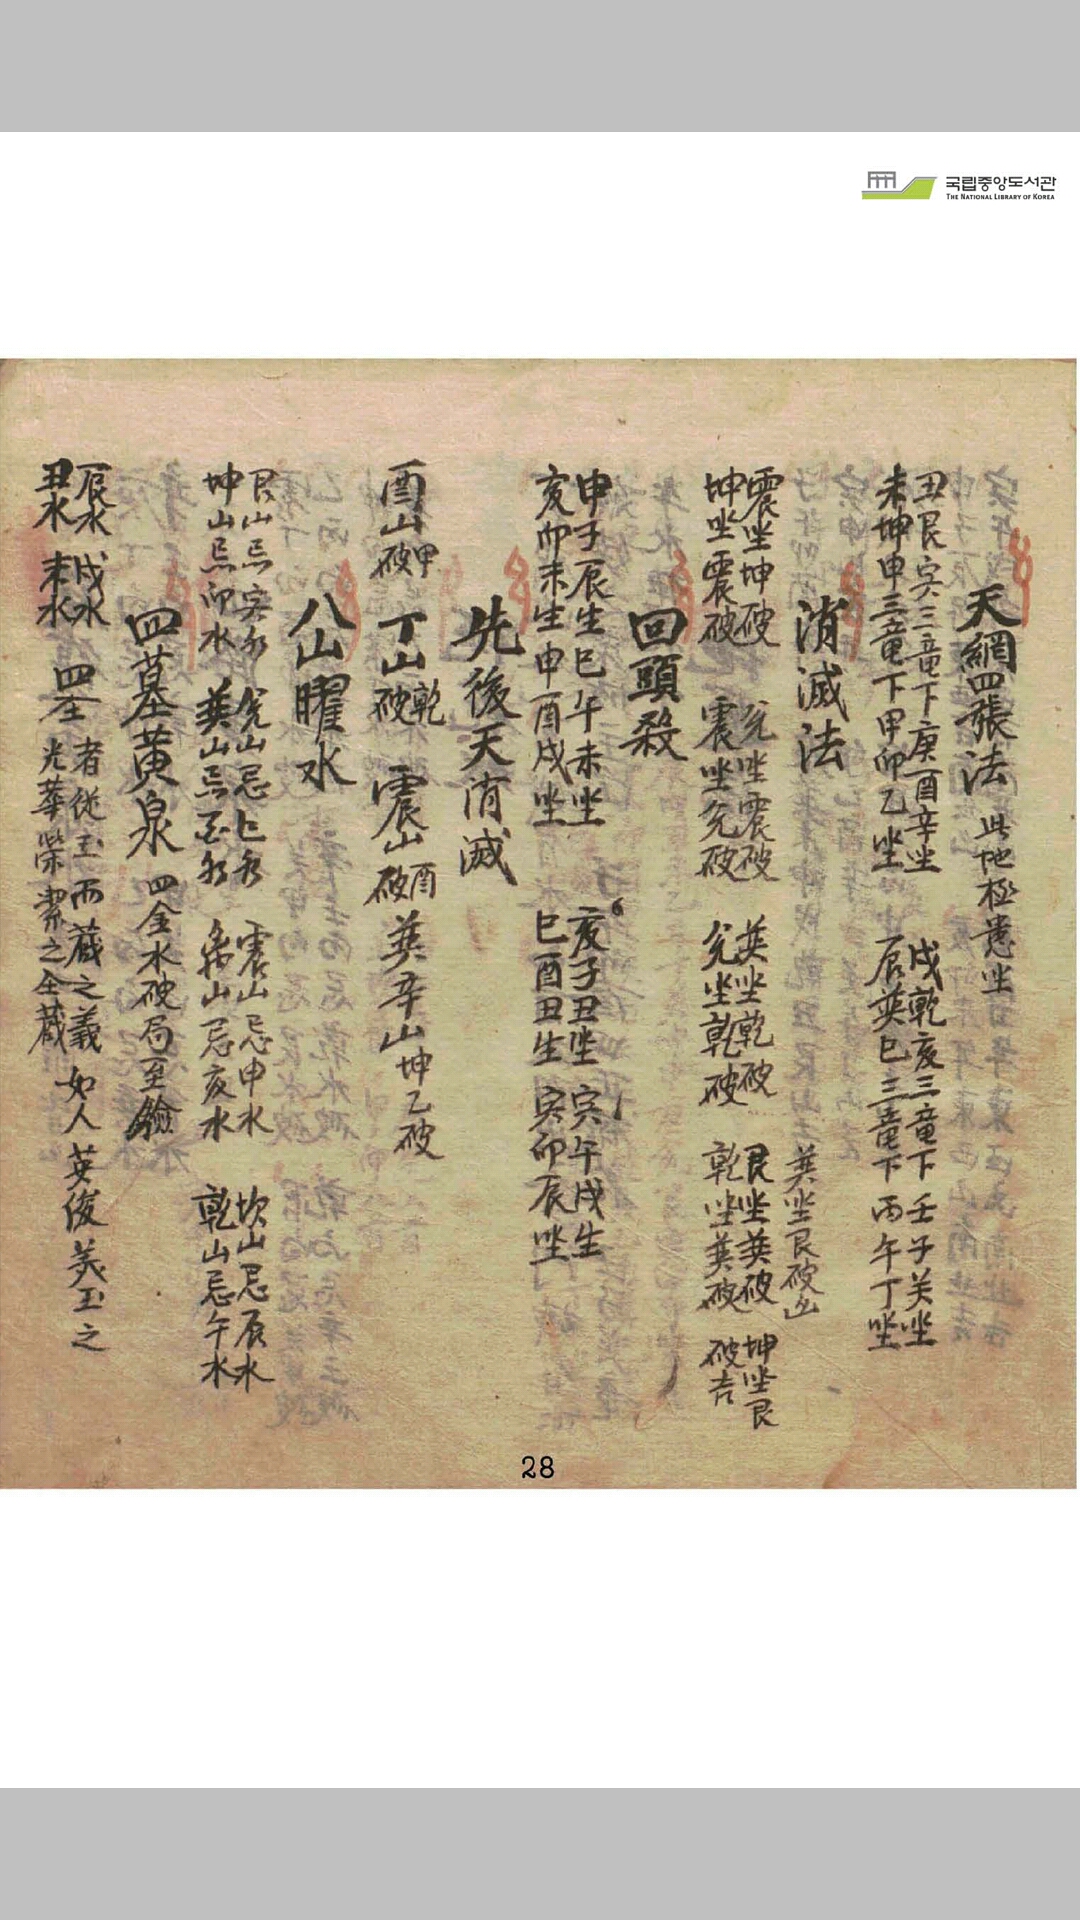 국립중앙도서관
THE NATIONAL LIBRARY OF KOREA
天網四張法 此地極 坐
丑艮寅三竜下庚酉辛坐 戌乾亥三竜下壬子癸坐
未坤申三竜下甲卯乙坐 辰巽巳三竜下丙午丁坐
消滅法 巽坐艮破凶
震坐坤破 兌坐震破 巽坐乾破 艮坐巽破 坤坐艮
坤坐震破 震坐兌破 兌坐乾破 乾坐巽破 破吉
回頭殺
申子辰生巳午未坐 亥子丑坐 寅午戌生
亥卯未生申酉戌坐 巳酉丑生 寅卯辰坐
先後天消滅
酉山甲破 丁山乾破 震山酉破 巽辛山坤乙破
八山曜水
艮山忌寅水 兌山忌巳水 震山忌申水 坎山忌辰水
坤山忌卯水 巽山忌酉水 离山忌亥水 乾山忌午水
四墓黃泉 四金水破局至鐱
辰水 戌水 者從玉而蔵之義如人英俊美玉之
丑水 未水 四 光華榮潔之全蔵
28